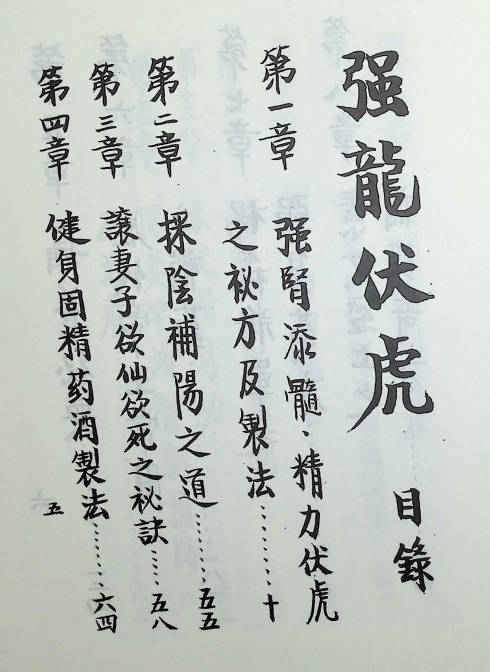 强龍伏虎
目錄
第一章 强腎添髓、精力伏虎
之祕方及製法……十
第二章 採陰補陽之道……五五
第三章 讓妻子欲仙欲死之祕訣……五八
第四章 健身固精药酒製法……六四
五